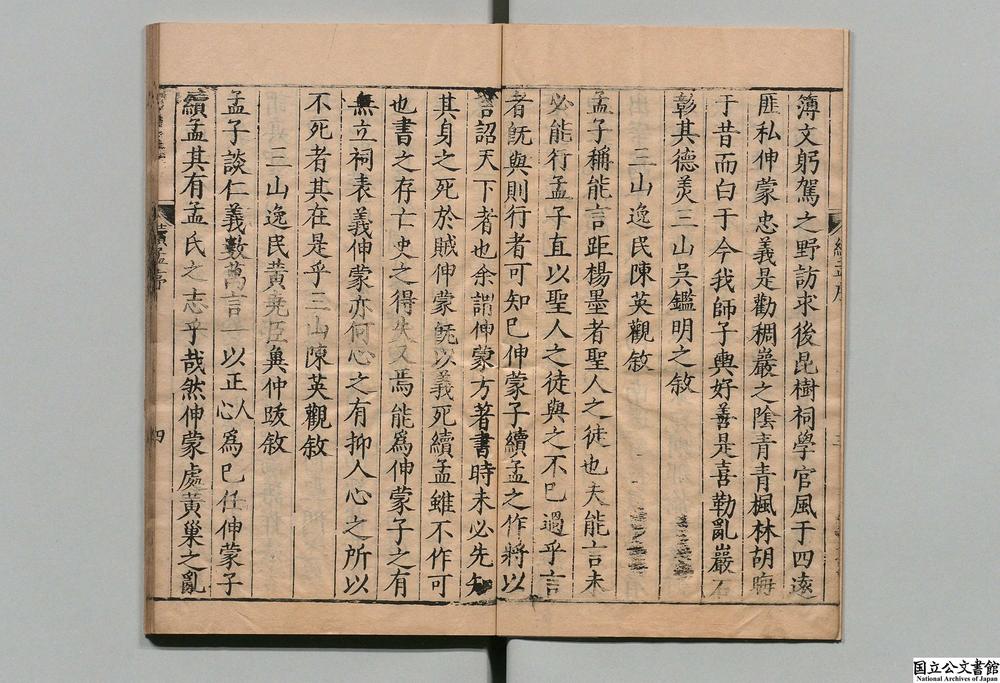 簿文躬駕之野訪求後昆樹祠學官風于四遠
匪私伸蒙忠義是勸稠巖之陰青青楓林胡晦
于昔而白于今我師子輿好善是喜勒亂巖
彰其德美三山吳鑑明之敘
三山逸民陳英觀敘
孟子稱能言距楊墨者聖人之徒也夫能言未
必能行孟子直以聖人之徒與之不已過乎言
者旣與則行者可知已伸蒙子續孟之作將以
言詔天下者也余謂伸蒙方著書時未必先知
其身之死於賊伸蒙旣以義死續孟雖不作可
也書之存亡史之得失又焉能為伸蒙子之有
無立祠表義伸蒙亦何心之有抑人心之所以
不死者其在是乎三山陳英觀敘
三山逸民黃堯臣興仲跋敘
孟子談仁義數萬言一以正人心為已任伸蒙子
續孟其有孟氏之志乎哉然伸蒙處黃巢之亂
續孟序
四
国立公文書館
National Archives of Japan